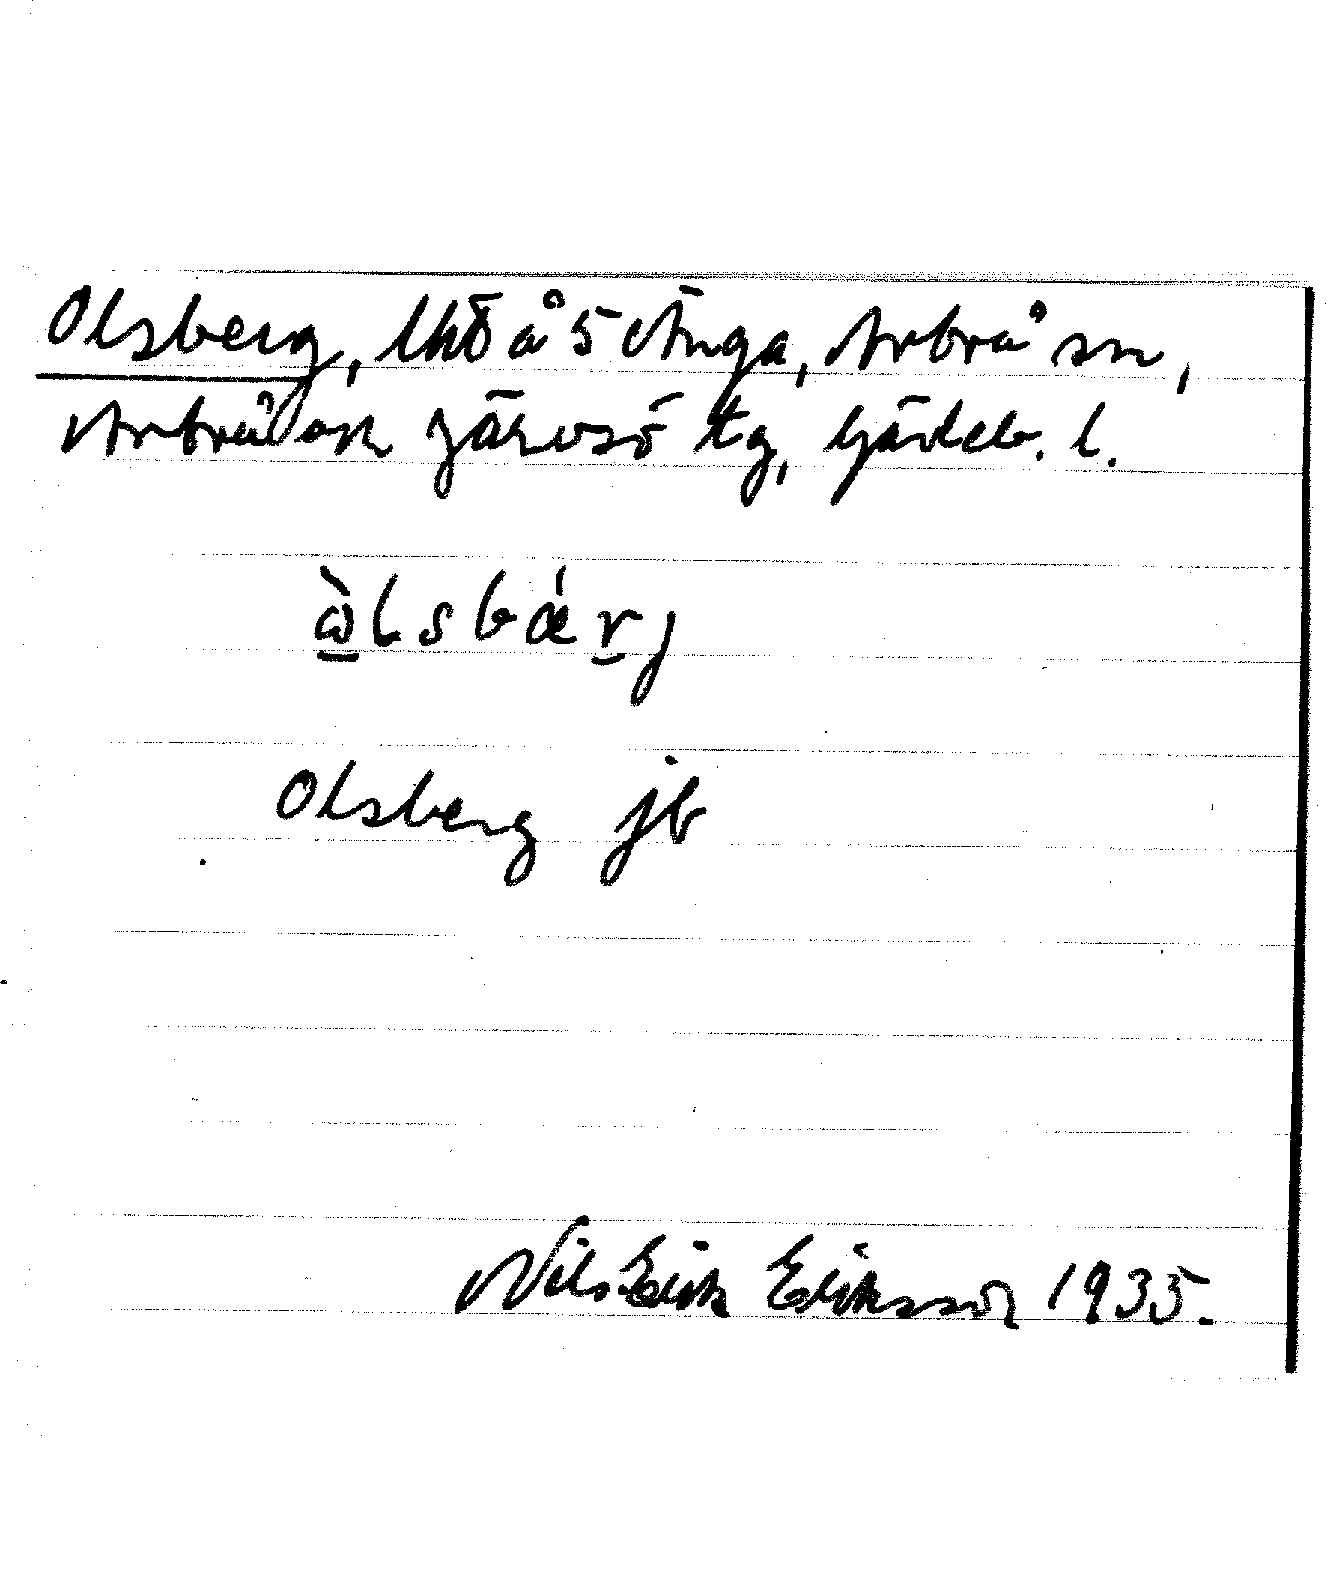 Olsberg, lht å 5 Änga, Arbrå sn,
Arbrå o Järvsö tg, Gävleb. l.
ὼlsbǽrj
Olsberg jb
Nils Erik Eriksson 1935.